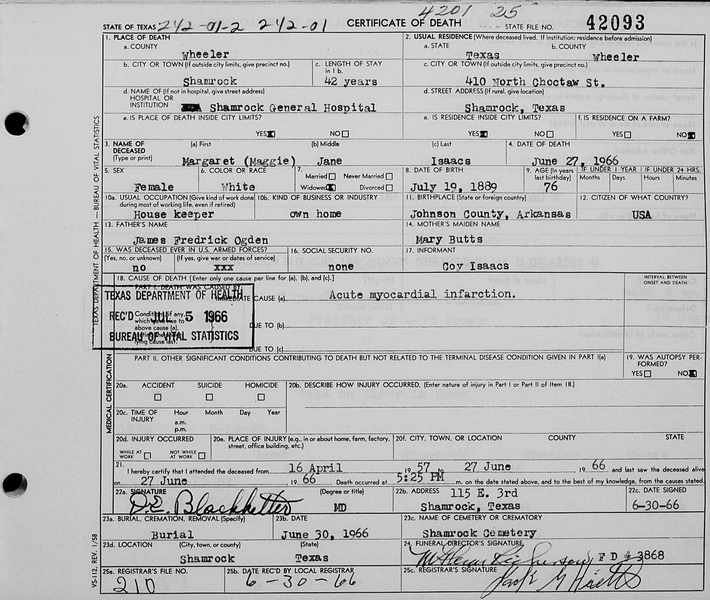 STATE OF TEXAS 242-01-2 242-01 CERTIFICATE OF DEATH 4201 25 STATE FILE NO. 42093
1. PLACE OF DEATH
a. COUNTY
Wheeler
2. USUAL RESIDENCE (Where deceased lived. If institution: residence before admission)
a. STATE b. COUNTY
Texas Wheeler
b. CITY OR TOWN (If outside city limits, give precinct no.)
Shamrock
c. LENGTH OF STAY in 1 b.
42 years
c. CITY OR TOWN (If outside city limits, give precinct no.)
410 North Choctaw St.
d. NAME OF (If not in hospital, give street address)
HOSPITAL OR
INSTITUTION Shamrock General Hospital
d. STREET ADDRESS (If rural, give location)
Shamrock, Texas
e. IS PLACE OF DEATH INSIDE CITY LIMITS?
YES☒ NO☐
e. IS RESIDENCE INSIDE CITY LIMITS?
YES☒ NO☐
f. IS RESIDENCE ON A FARM?
YES☐ NO☒
3. NAME OF DECEASED (Type or print)
(a) First (b) Middle (c) Last
Margaret (Maggie) Jane Isaacs
4. DATE OF DEATH
June 27, 1966
5. SEX
Female
6. COLOR OR RACE
White
7.
Married☐ Never Married☐
Widowed☒ Divorced☐
8. DATE OF BIRTH
July 19, 1889
9. AGE (In years last birthday)
76
IF UNDER 1 YEAR IF UNDER 24 HRS.
Months Days Hours Minutes
10a. USUAL OCCUPATION (Give kind of work done during most of working life, even if retired)
House keeper
10b. KIND OF BUSINESS OR INDUSTRY
own home
11. BIRTHPLACE (State or foreign country)
Johnson County, Arkansas
12. CITIZEN OF WHAT COUNTRY?
USA
13. FATHER'S NAME
James Fredrick Ogden
14. MOTHER'S MAIDEN NAME
Mary Butts
15. WAS DECEASED EVER IN U.S. ARMED FORCES?
(Yes, no, or unknown) (If yes, give war or dates of service)
no xxx
16. SOCIAL SECURITY NO.
none
17. INFORMANT
Coy Isaacs
18. CAUSE OF DEATH [Enter only one cause per line for (a), (b), and (c).]
INTERVAL BETWEEN ONSET AND DEATH
PART I. DEATH WAS CAUSED BY
CAUSE (a) Acute myocardial infarction.
TEXAS DEPARTMENT OF HEALTH
REC'D JUL 5 1966
BUREAU OF VITAL STATISTICS
DUE TO (b)
DUE TO (c)
PART II. OTHER SIGNIFICANT CONDITIONS CONTRIBUTING TO DEATH BUT NOT RELATED TO THE TERMINAL DISEASE CONDITION GIVEN IN PART I(a)
19. WAS AUTOPSY PERFORMED?
YES☐ NO☒
20a. ACCIDENT SUICIDE HOMICIDE
☐ ☐ ☐
20b. DESCRIBE HOW INJURY OCCURRED. (Enter nature of injury in Part I or Part II of Item 18.)
20c. TIME OF INJURY Hour Month Day Year
a.m.
p.m.
20d. INJURY OCCURRED
WHILE AT WORK ☐ NOT WHILE AT WORK ☐
20e. PLACE OF INJURY (e.g., in or about home, farm, factory, street, office building, etc.)
20f. CITY, TOWN, OR LOCATION COUNTY STATE
21.
I hereby certify that I attended the deceased from 16 April 1957, 27 June 1966 and last saw the deceased alive
on 27 June 1966 Death occurred at 5:25 PM m. on the date stated above, and to the best of my knowledge, from the causes stated.
22a. SIGNATURE (Degree or title)
Blackketter MD
22b. ADDRESS 115 E. 3rd
Shamrock, Texas
22c. DATE SIGNED
6-30-66
23a. BURIAL, CREMATION, REMOVAL (Specify)
Burial
23b. DATE
June 30, 1966
23c. NAME OF CEMETERY OR CREMATORY
Shamrock Cemetery
23d. LOCATION (City, town, or county) (State)
Shamrock Texas
24. FUNERAL DIRECTOR'S SIGNATURE
F D 3868
25a. REGISTRAR'S FILE NO.
210
25b. DATE REC'D BY LOCAL REGISTRAR
6-30-66
25c. REGISTRAR'S SIGNATURE
Jack
TEXAS DEPARTMENT OF HEALTH — BUREAU OF VITAL STATISTICS
MEDICAL CERTIFICATION
VS-112, REV. 1/58